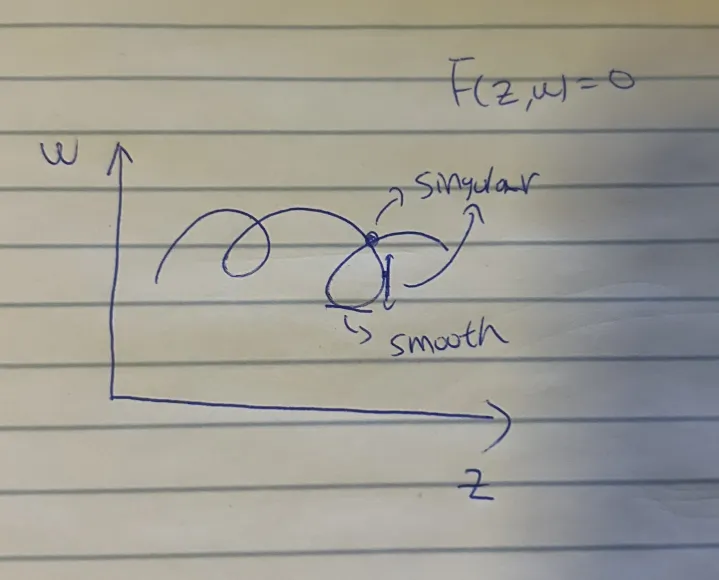 F(z,w)=0
w
singular
smooth
z